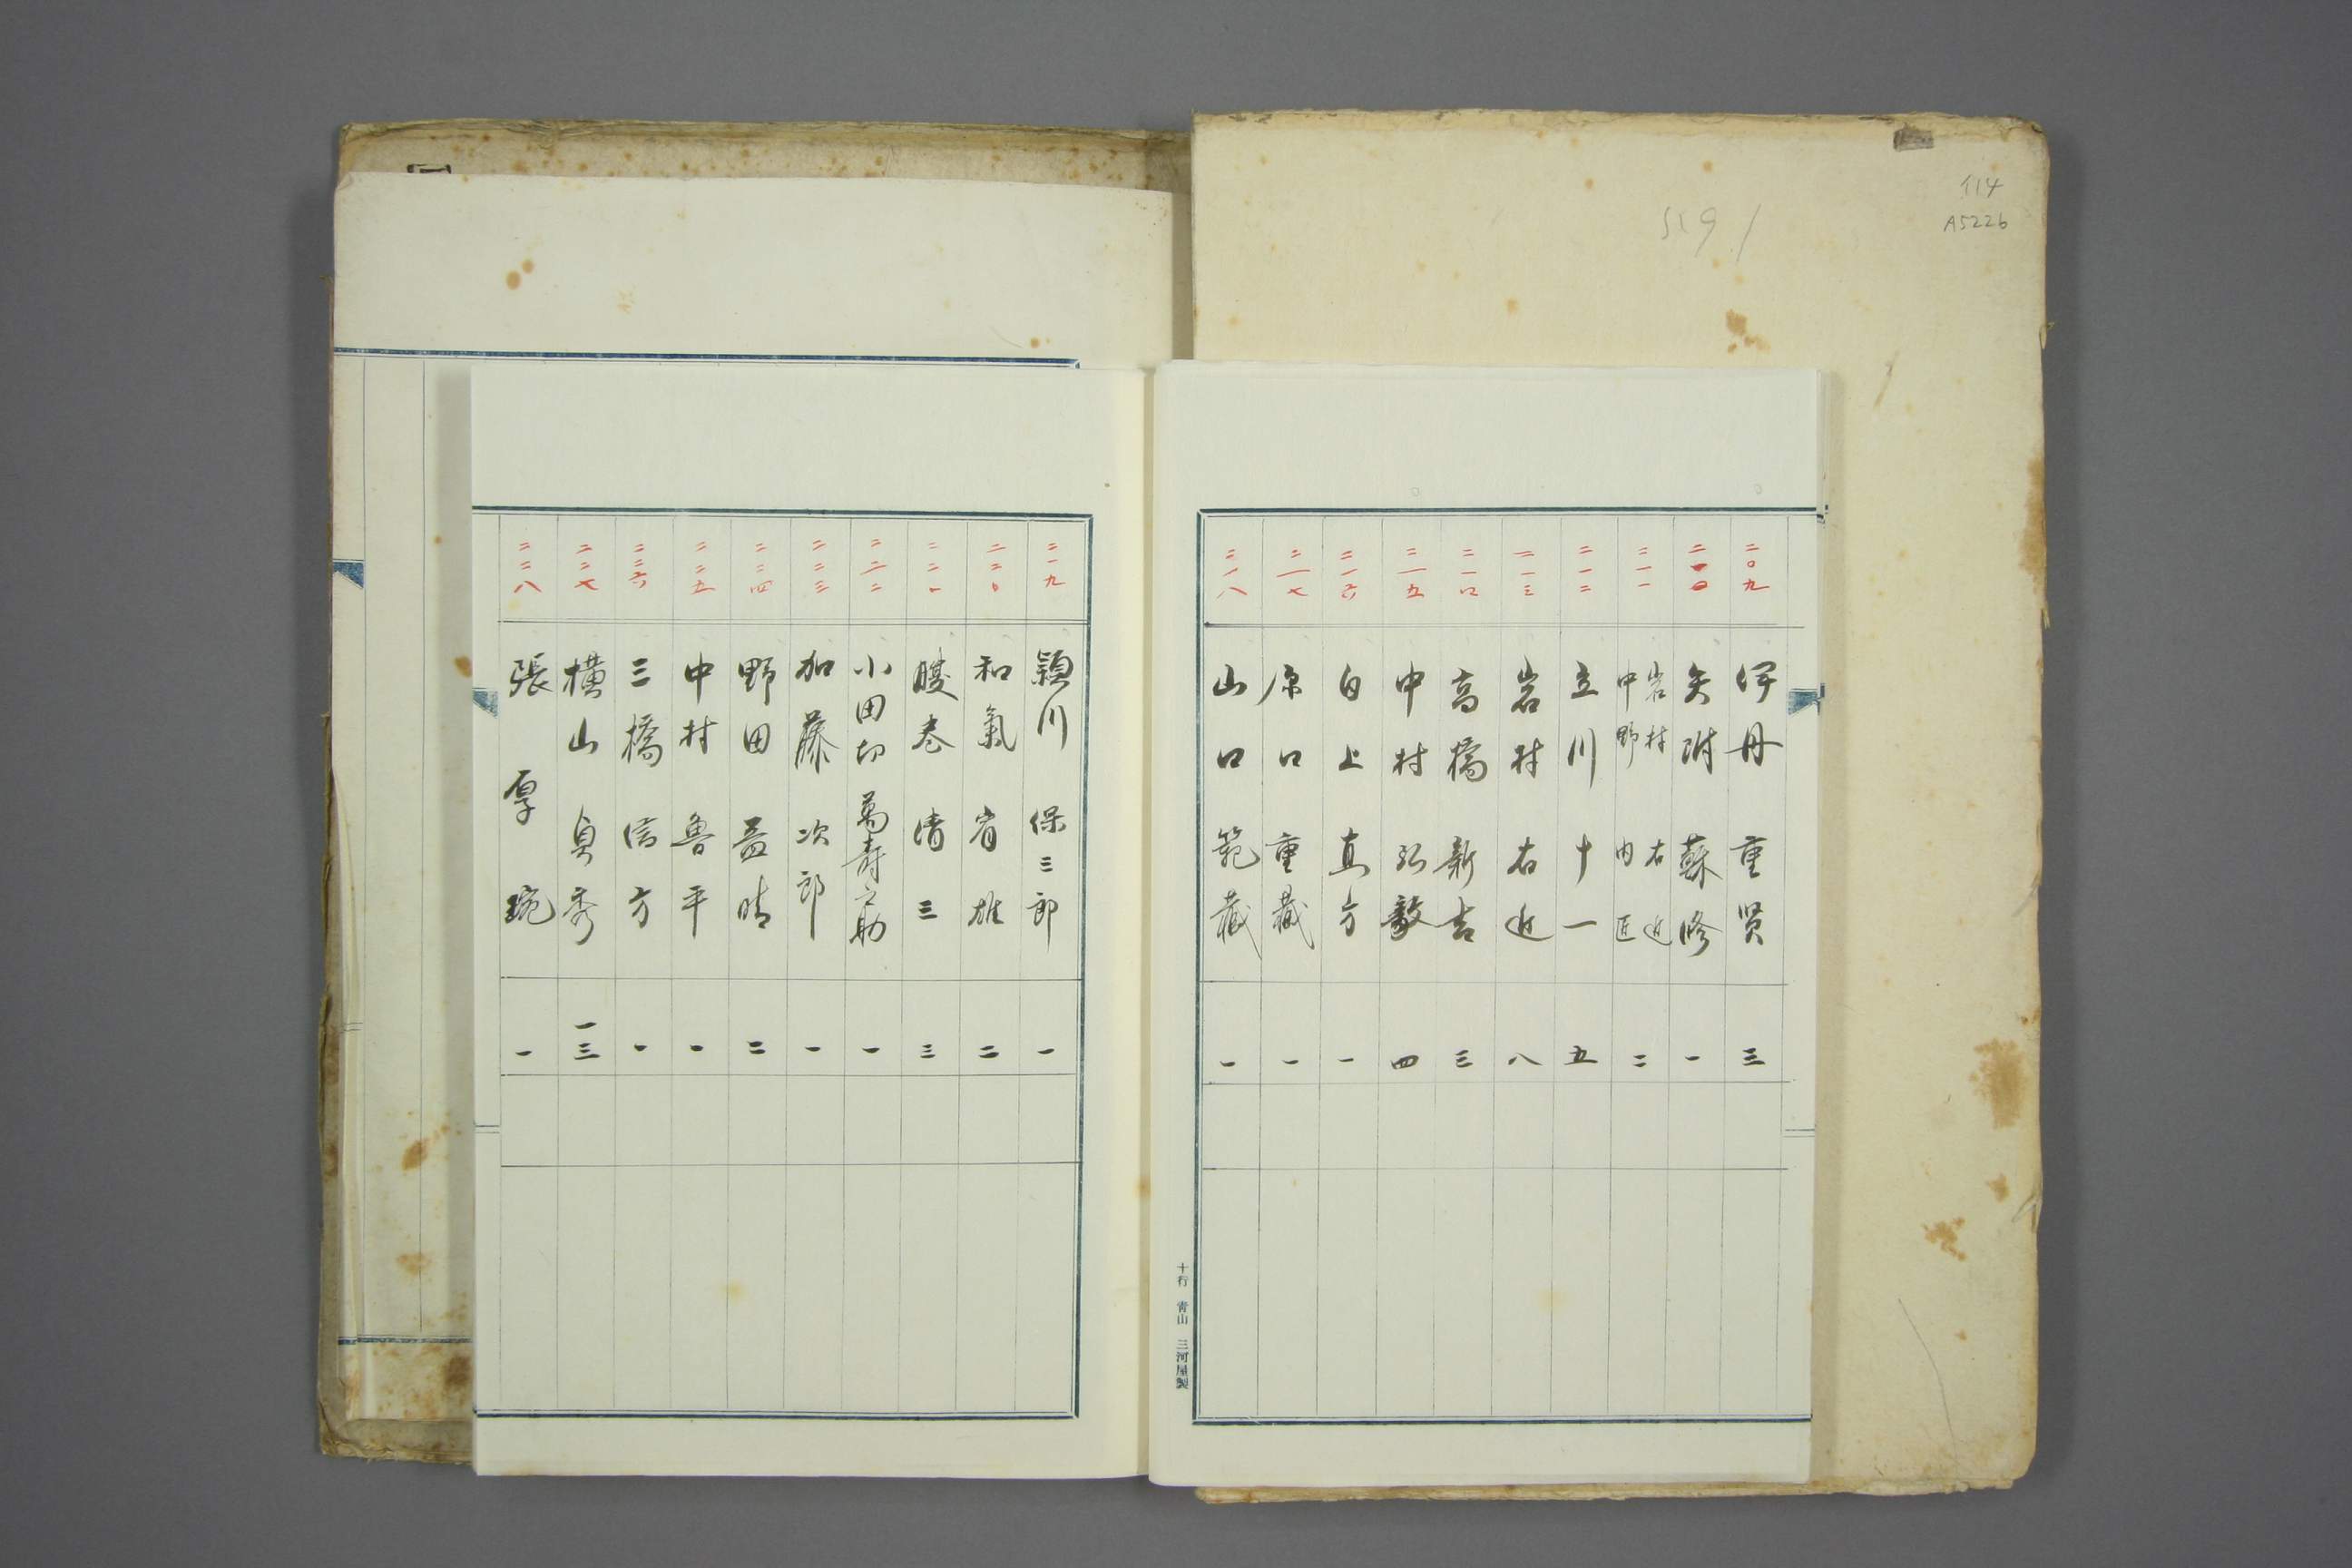 114
A5226
5191
二〇九 伊丹 重賢 三
二一〇 矢附 蘇修 一
二一一 岩村 右近 中野 内匠 二
二一二 立川 十一 五
二一三 岩村 右近 八
二一四 高橋 新吉 三
二一五 中村 弘毅 四
二一六 白上 直方 一
二一七 原口 重蔵 一
二一八 山口 範蔵 一
十行 青山 三河屋製
二一九 穎川 保三郎 一
二二〇 和氣 省雄 二
二二一 腹巻 清三 三
二二二 小田切 萬寿之助 一
二二三 加藤 次郎 一
二二四 野田 益晴 二
二二五 中村 魯平 一
二二六 三橋 信方 一
二二七 横山 貞秀 一三
二二八 張 厚琬 一